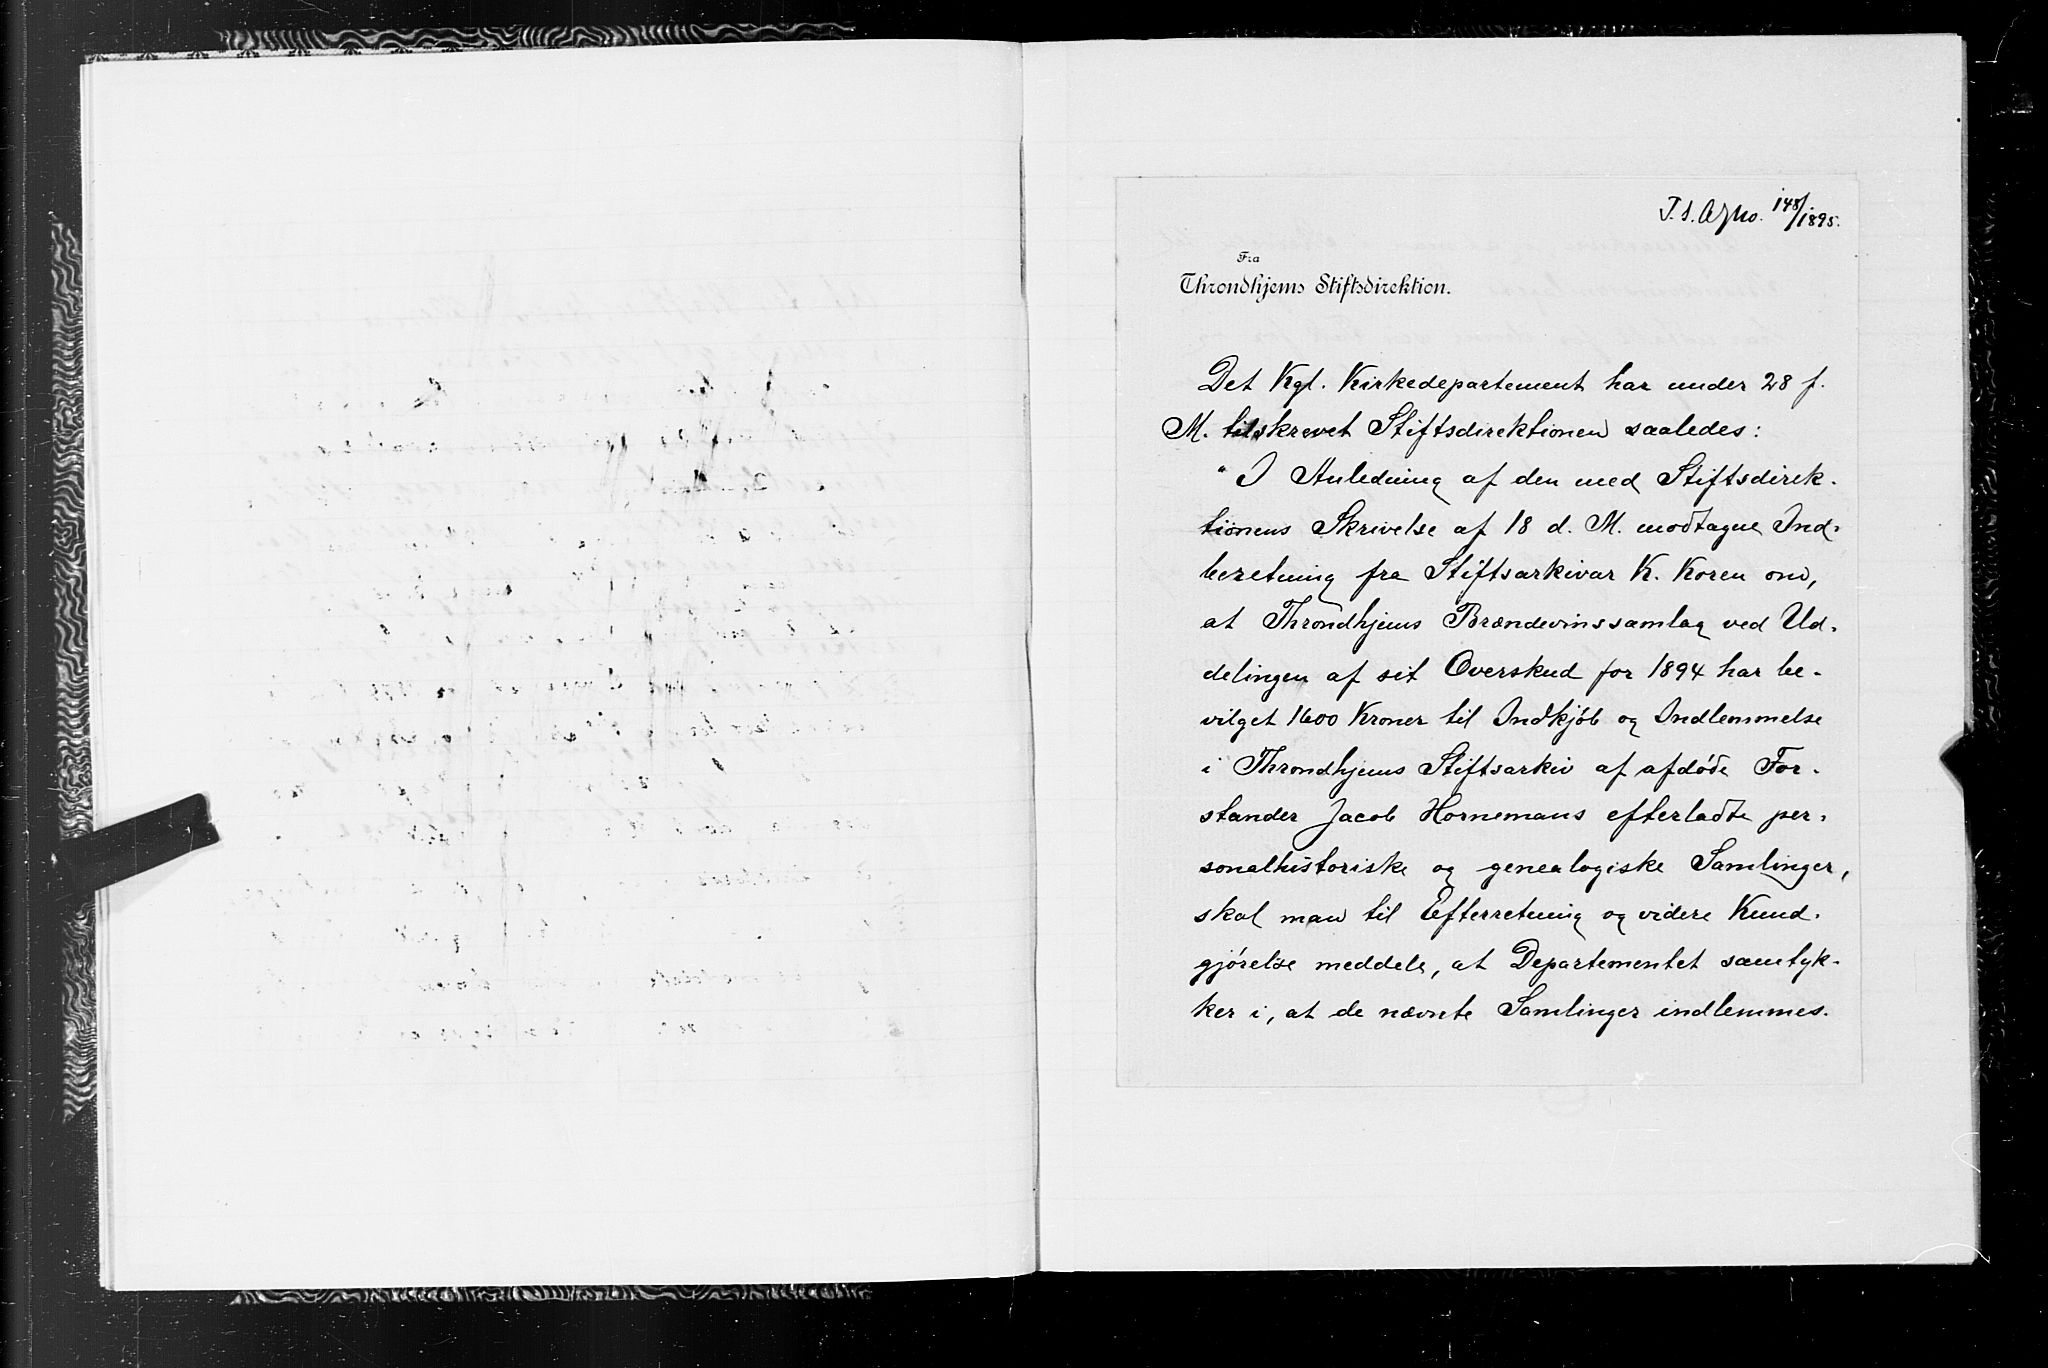 T. S. A. J No. 148/1895.
Fra
Throndhjems Stiftsdirektion.
Det Kgl. Kirkedepartement har under 28 f.
M. tilskrevet Stiftsdirektionen saaledes:
"I Anledning af den med Stiftsdirek-
tionens Skrivelse af 18 d. M. modtagne Ind-
beretning fra Stiftsarkivar K. Koren om,
at Throndhjems Brændevinssamlag ved Ud-
delingen af sit Overskud for 1894 har be-
vilget 1600 Kroner til Indkjöb og Indlemmelse
i Throndhjems Stiftsarkiv af afdöde For-
stander Jacob Hornemans efterladte per-
sonalhistoriske og genealogiske Samlinger,
skal man til Efterretning og videre Kund-
gjörelse meddele, at Departementet samtyk-
ker i, at de nævnte Samlinger indlemmes.